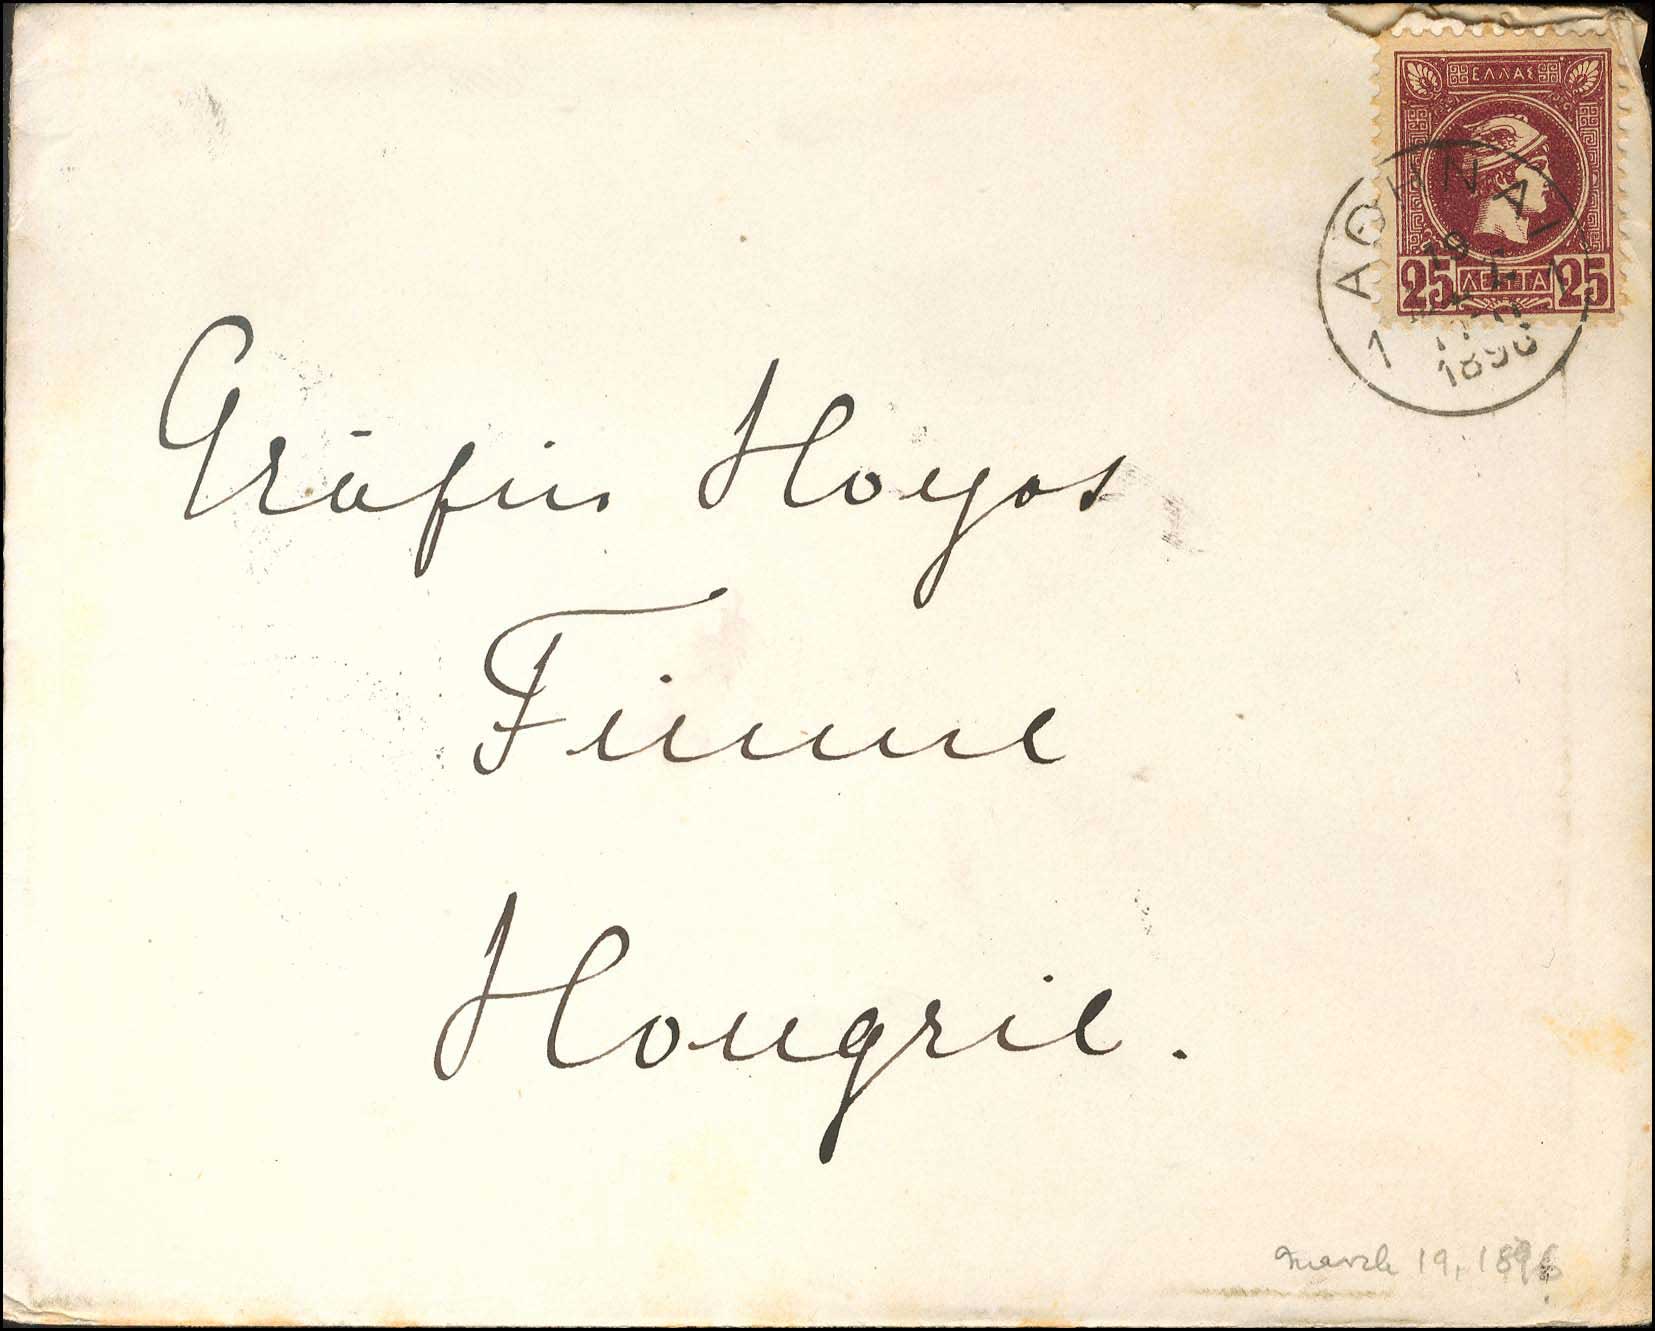 ΕΛΛΑΣ
25 ΛΕΠΤΑ 25
ΑΘΗΝΑΙ
19
1 1
1896
Gräfin Hoyos
Fiume
Hongrie.
March 19, 1896